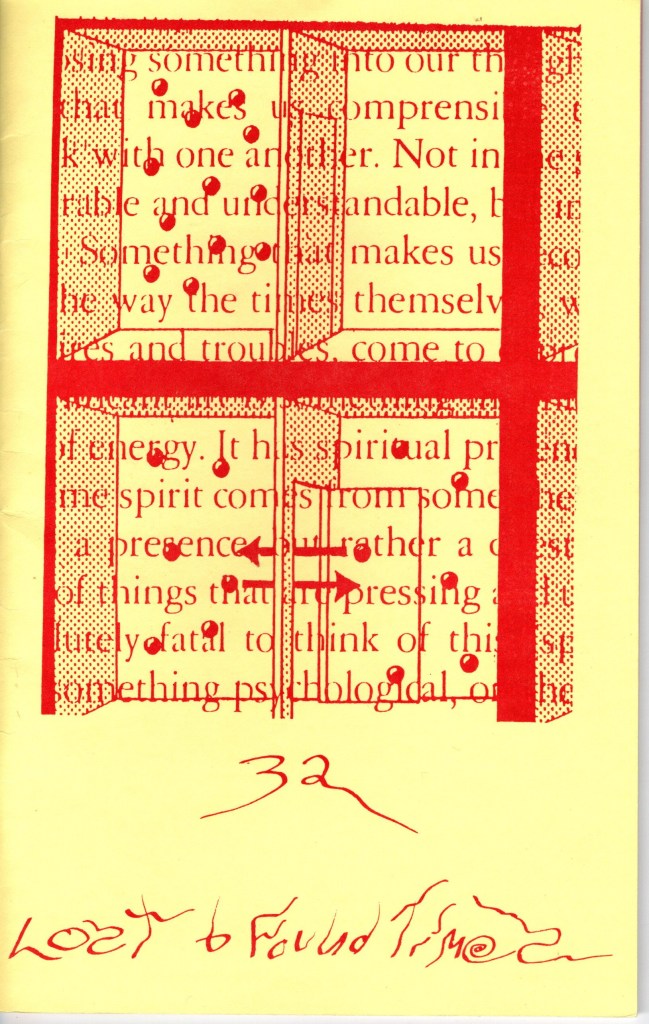 osing something into our th gh
that makes us comprensi t
k with one another. Not in e
rable and understandable, b in
Something that makes us eco
he way the times themselv w
ures and troubles, come to
of energy. It has spiritual pr en
me spirit comes from some he
a presence but rather a est
of things that are pressing
lutely fatal to think of this sp
something psychological, or the
32
Lost & Found Times